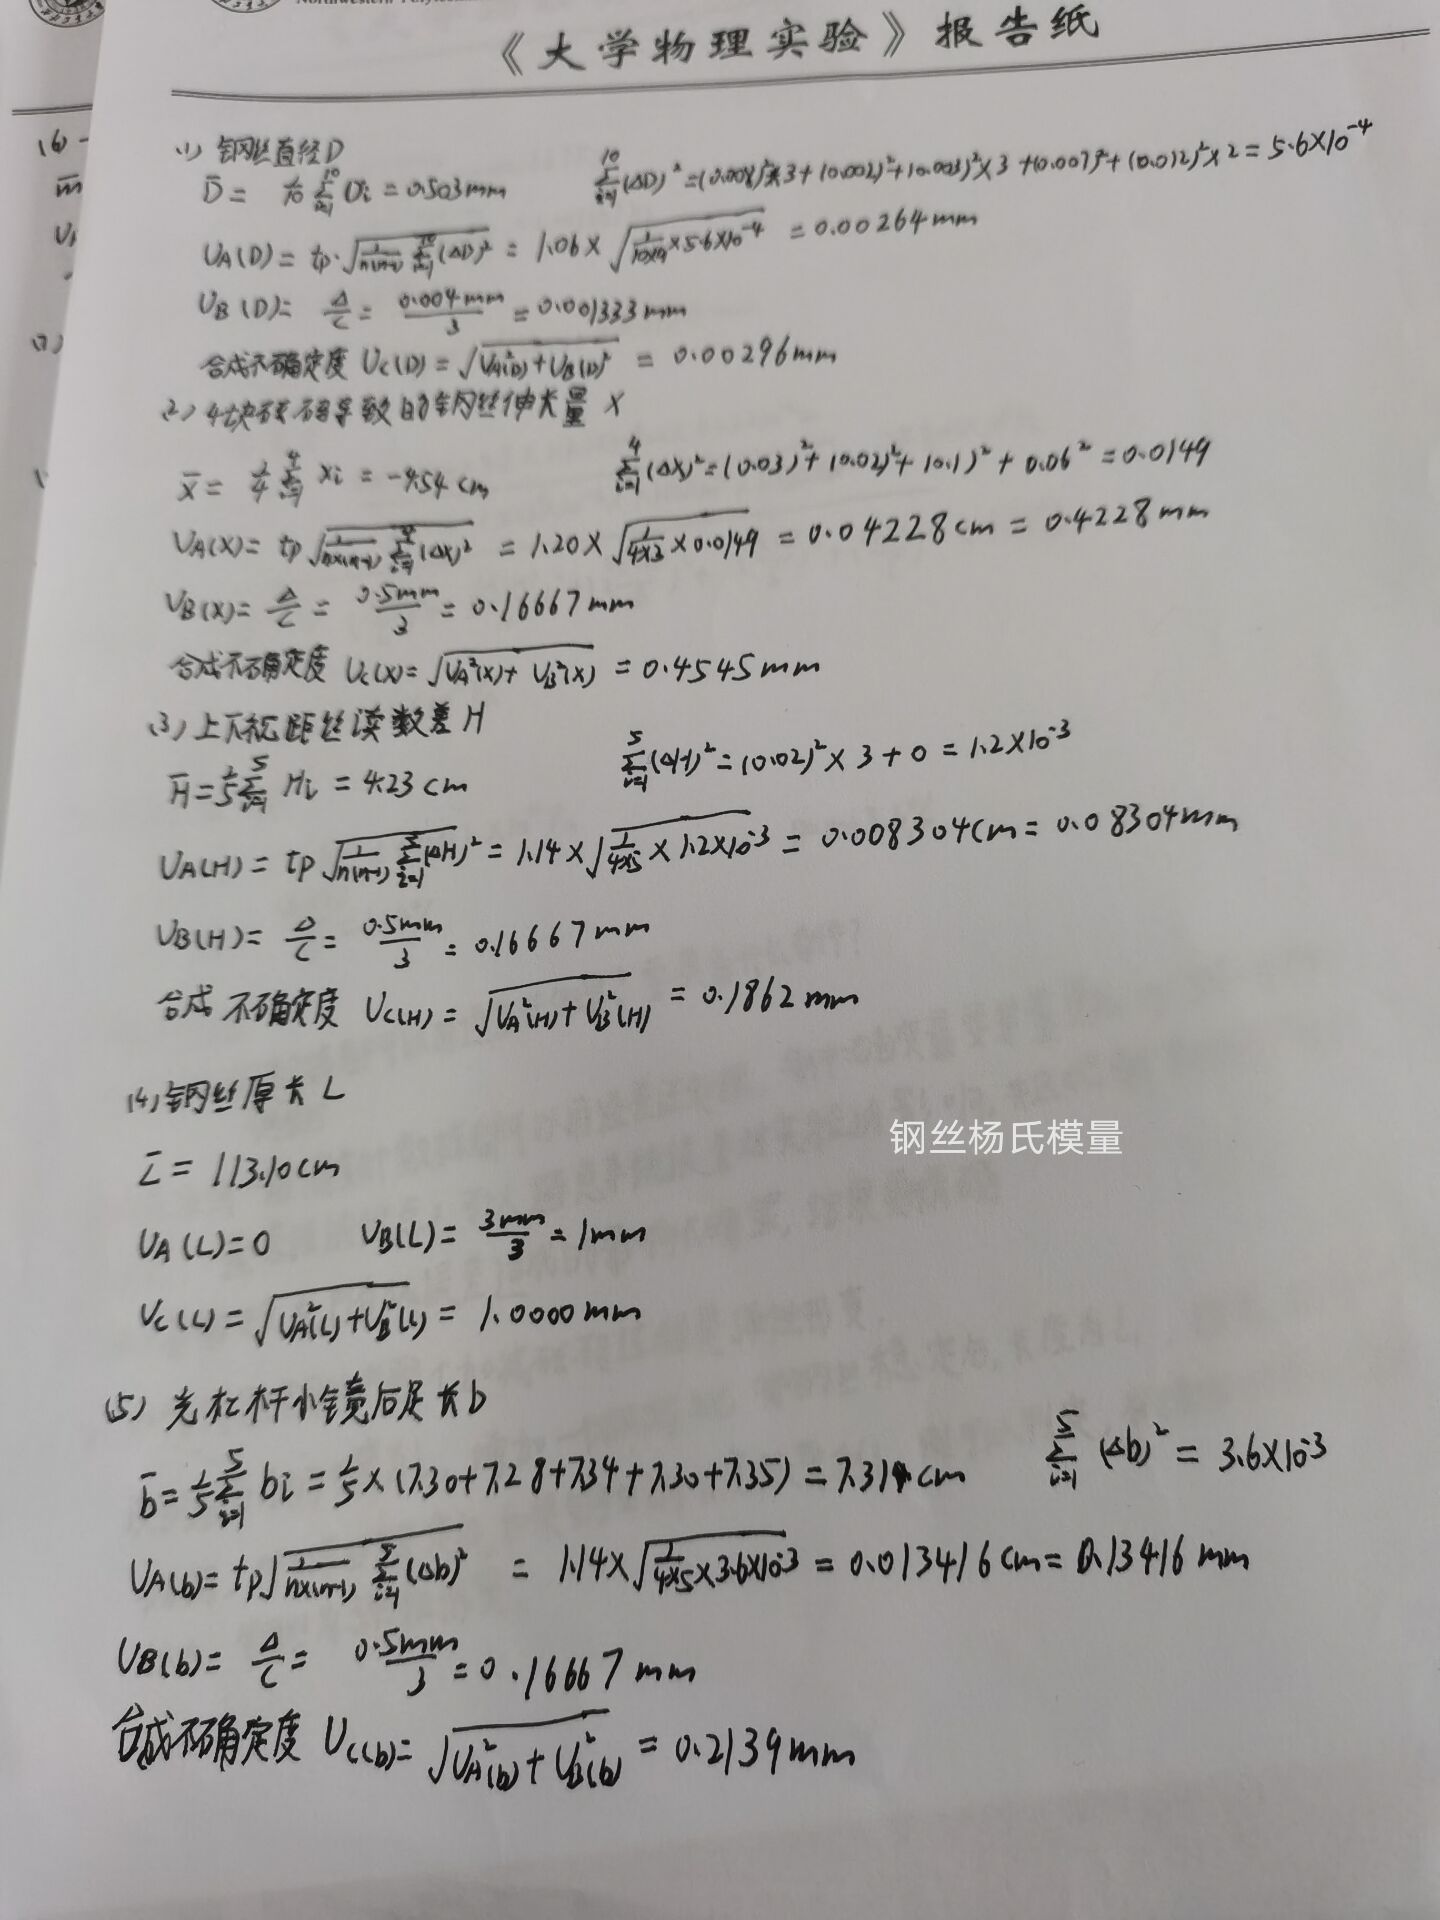 《大学物理实验》报告纸
(6)
(1) 钢丝直径D
D̄ = 1/10 Σ(i=1→10) Di = 0.503mm
Σ(i=1→10)(ΔD)² = (0.008)²×3+(0.002)²+(0.003)²×3+(0.007)²+(0.012)²×2=5.6×10⁻⁴
UA(D) = tp·√(1/n(n-1) Σ(i=1→10)(ΔD)²) = 1.06×√(1/10×9 ×5.6×10⁻⁴) = 0.00264mm
UB(D)= Δ/C = 0.004mm/3 = 0.001333mm
合成不确定度 UC(D) = √(UA²(D)+UB(D)²) = 0.00296mm
(2) 4块砝码导致的钢丝伸长量 X
X̄ = 1/4 Σ(i=1→4) Xi = -4.54 cm
Σ(i=1→4)(ΔX)²=(0.03)²+(0.02)²+(0.1)²+0.06²=0.0149
UA(X)= tp√(1/n×(n-1) Σ(i=1→4)(ΔX)²) = 1.20×√(1/4×3 ×0.0149) = 0.04228cm = 0.4228mm
UB(X)= Δ/C = 0.5mm/3 = 0.16667mm
合成不确定度 UC(X)=√(UA²(X)+UB²(X)) = 0.4545mm
(3) 上下视距丝读数差H
H̄=1/5 Σ(i=1→5) Hi = 4.23cm
Σ(i=1→5)(ΔH)²=(0.02)²×3+0=1.2×10⁻³
UA(H) = tp√(1/n(n-1) Σ(i=1→5)(ΔH)²) = 1.14×√(1/4×5 ×1.2×10⁻³) = 0.008304cm=0.08304mm
UB(H)= Δ/C = 0.5mm/3 = 0.16667mm
合成不确定度 UC(H) = √(UA²(H)+UB²(H)) = 0.1862mm
(4) 钢丝原长L
L̄ = 113.10cm
钢丝杨氏模量
UA(L)=0 UB(L)= 3mm/3 = 1mm
UC(L)=√(UA²(L)+UB²(L)) = 1.0000mm
(5) 光杠杆小镜后足长b
b̄=1/5 Σ(i=1→5) bi = 1/5×(7.30+7.28+7.34+7.30+7.35)=7.314cm
Σ(i=1→5)(Δb)²=3.6×10⁻³
UA(b)= tp√(1/n×(n-1) Σ(i=1→5)(Δb)²) = 1.14×√(1/4×5 ×3.6×10⁻³) = 0.013416cm=0.13416mm
UB(b)= Δ/C = 0.5mm/3 =0.16667mm
合成不确定度 UC(b)= √(UA²(b)+UB²(b)) = 0.2139mm